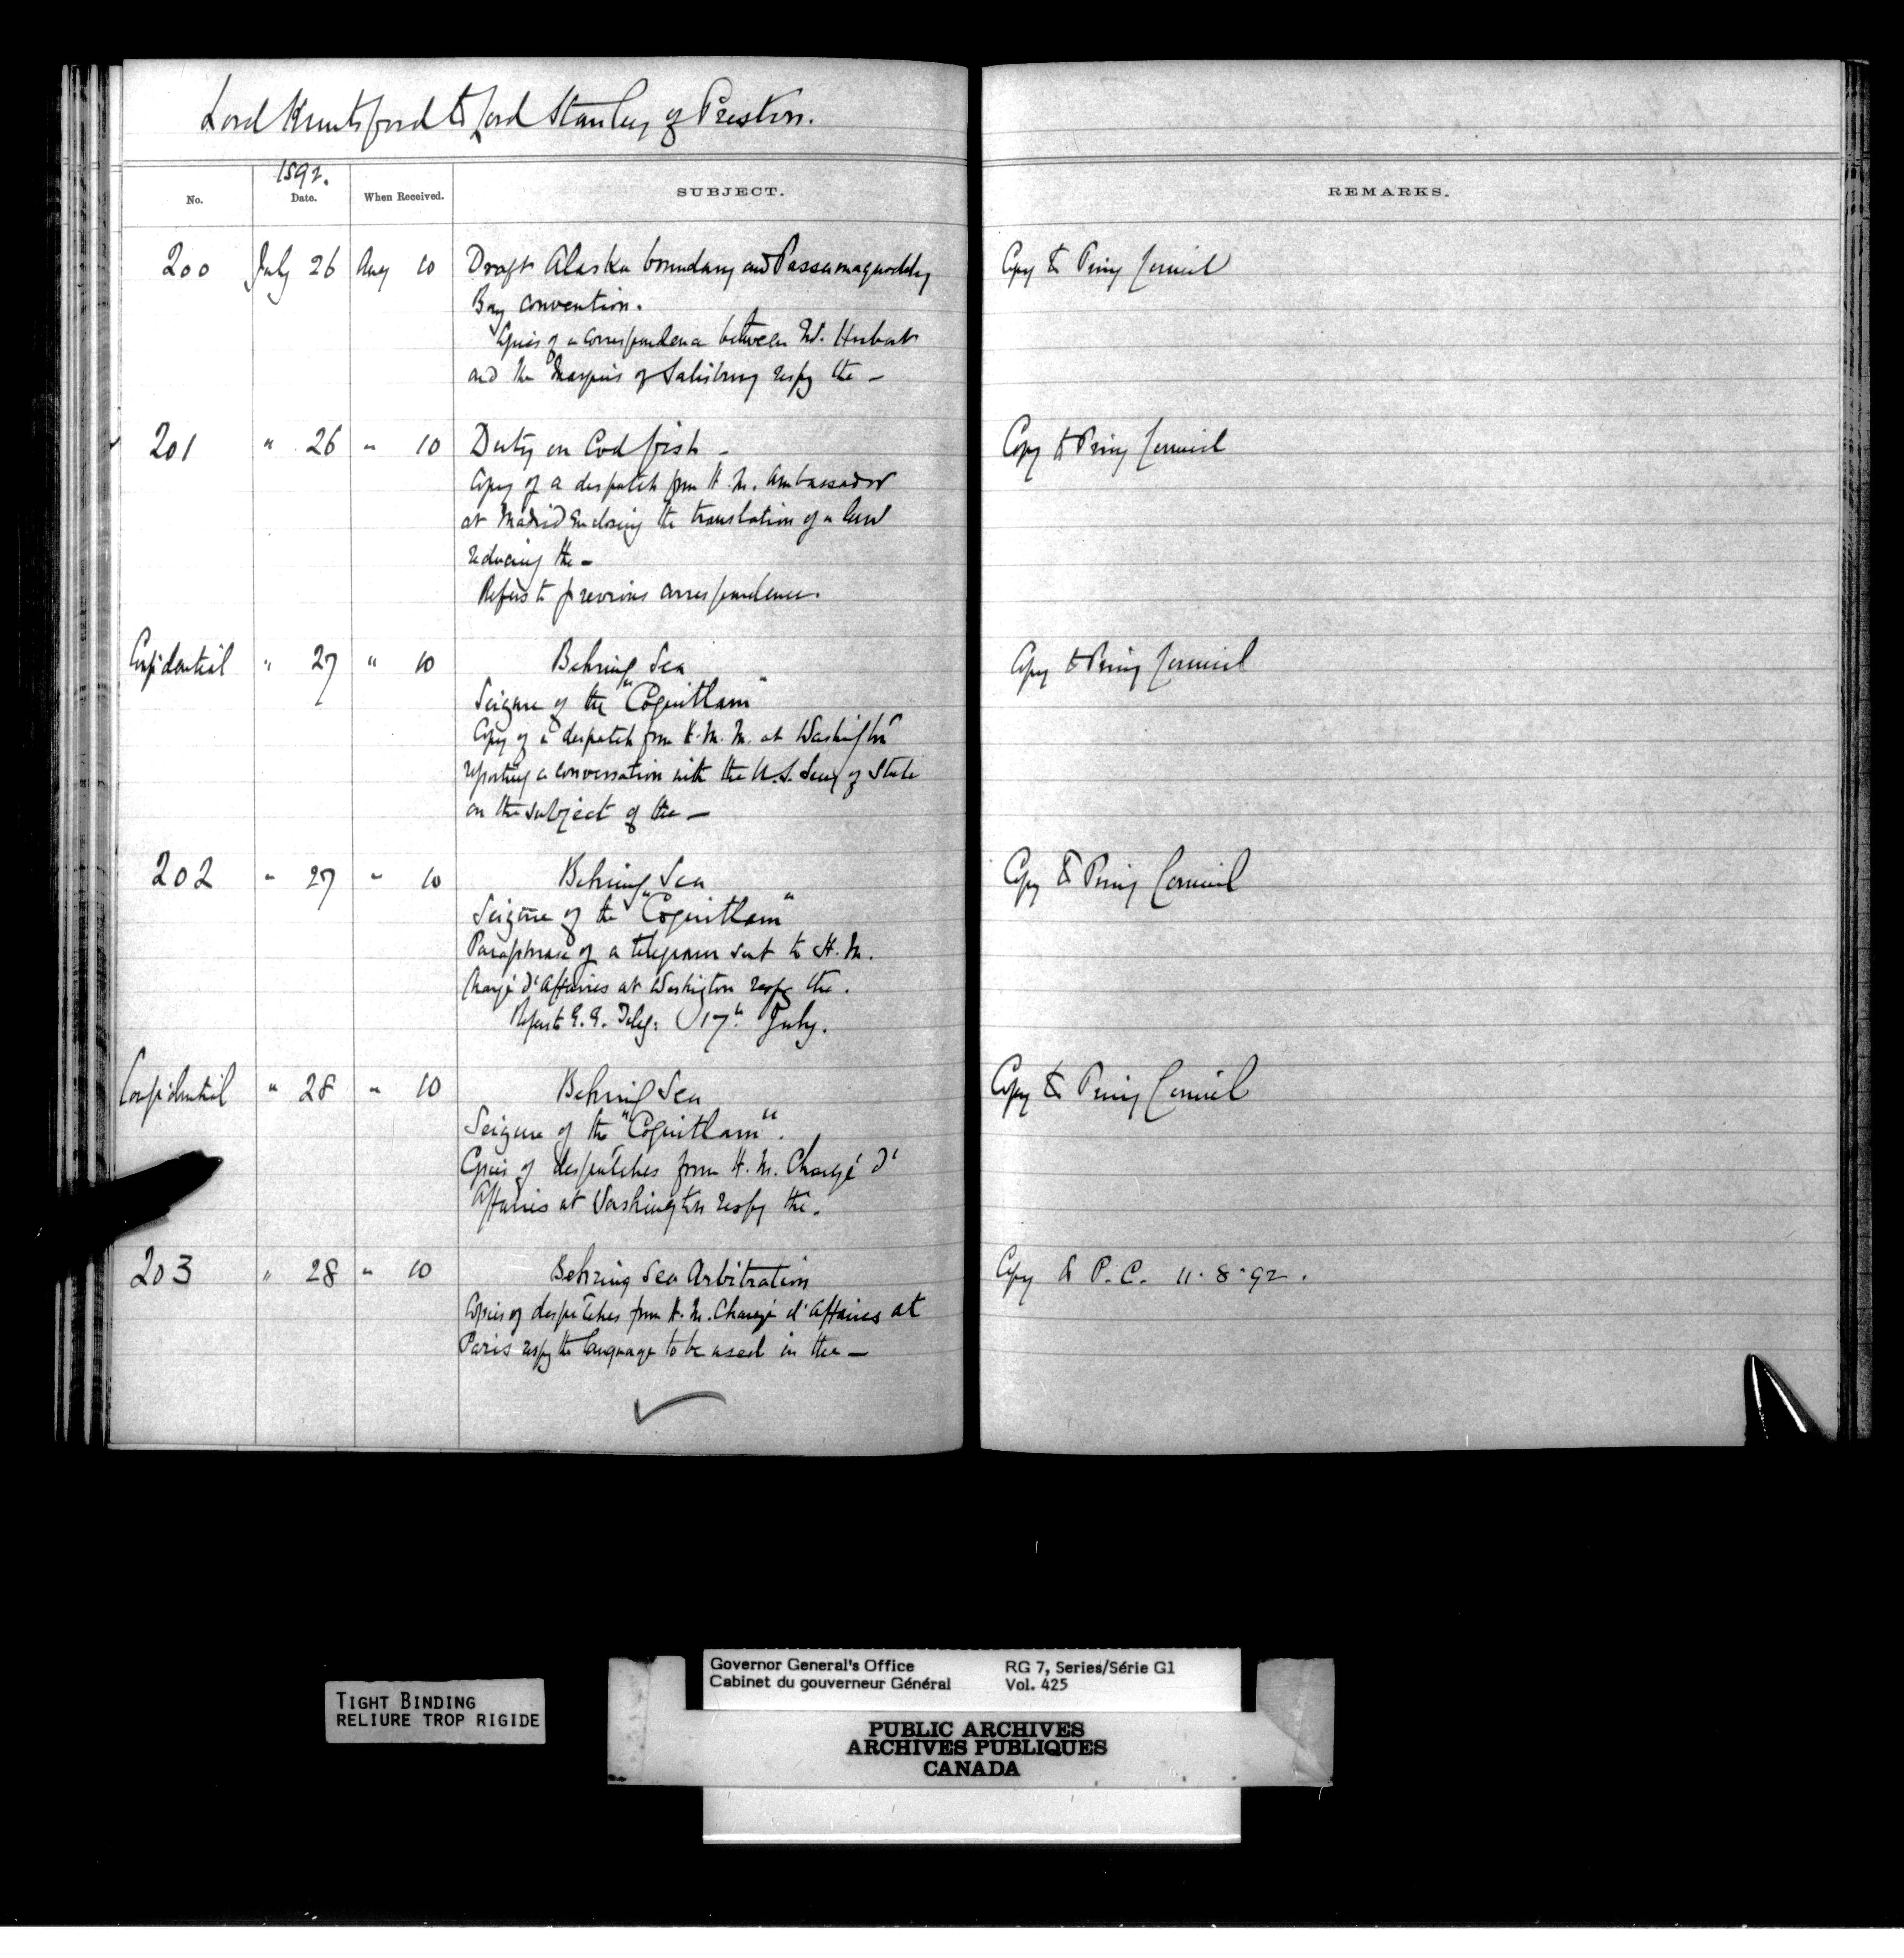 Lord Knutsford to Lord Stanley of Preston.
1892.
No. Date. When Received. SUBJECT. REMARKS.
200 July 26 Aug 10 Draft Alaska boundary and Passamaquoddy Copy to Privy Council
Bay convention.
Copies of a correspondence between Mr. Herbert
and the Marquis of Salisbury respg the —
201 " 26 " 10 Duty on Cod fish — Copy to Privy Council
Copy of a despatch from H.M. Ambassador
at Madrid enclosing the translation of a law
reducing the —
Refers to previous correspondence.
Confidential " 27 " 10 Behring Sea Copy to Privy Council
Seizure of the "Coquitlam"
Copy of a despatch from H.M.M. at Washington
reporting a conversation with the U.S. Secy of State
on the subject of the —
202 " 27 " 10 Behring Sea Copy to Privy Council
Seizure of the "Coquitlam"
Paraphrase of a telegram sent to H.M.
Chargé d'Affaires at Washington respg the.
Refers to G.G. Teleg: 17th July.
Confidential " 28 " 10 Behring Sea Copy to Privy Council
Seizure of the "Coquitlam".
Copies of despatches from H.M. Chargé d'
Affaires at Washington respg the.
203 " 28 " 10 Behring Sea Arbitration Copy to P.C. 11.8.92.
Copies of despatches from H.M. Chargé d'Affaires at
Paris respg the language to be used in the —
TIGHT BINDING
RELIURE TROP RIGIDE
Governor General's Office RG 7, Series/Série G1
Cabinet du gouverneur Général Vol. 425
PUBLIC ARCHIVES
ARCHIVES PUBLIQUES
CANADA